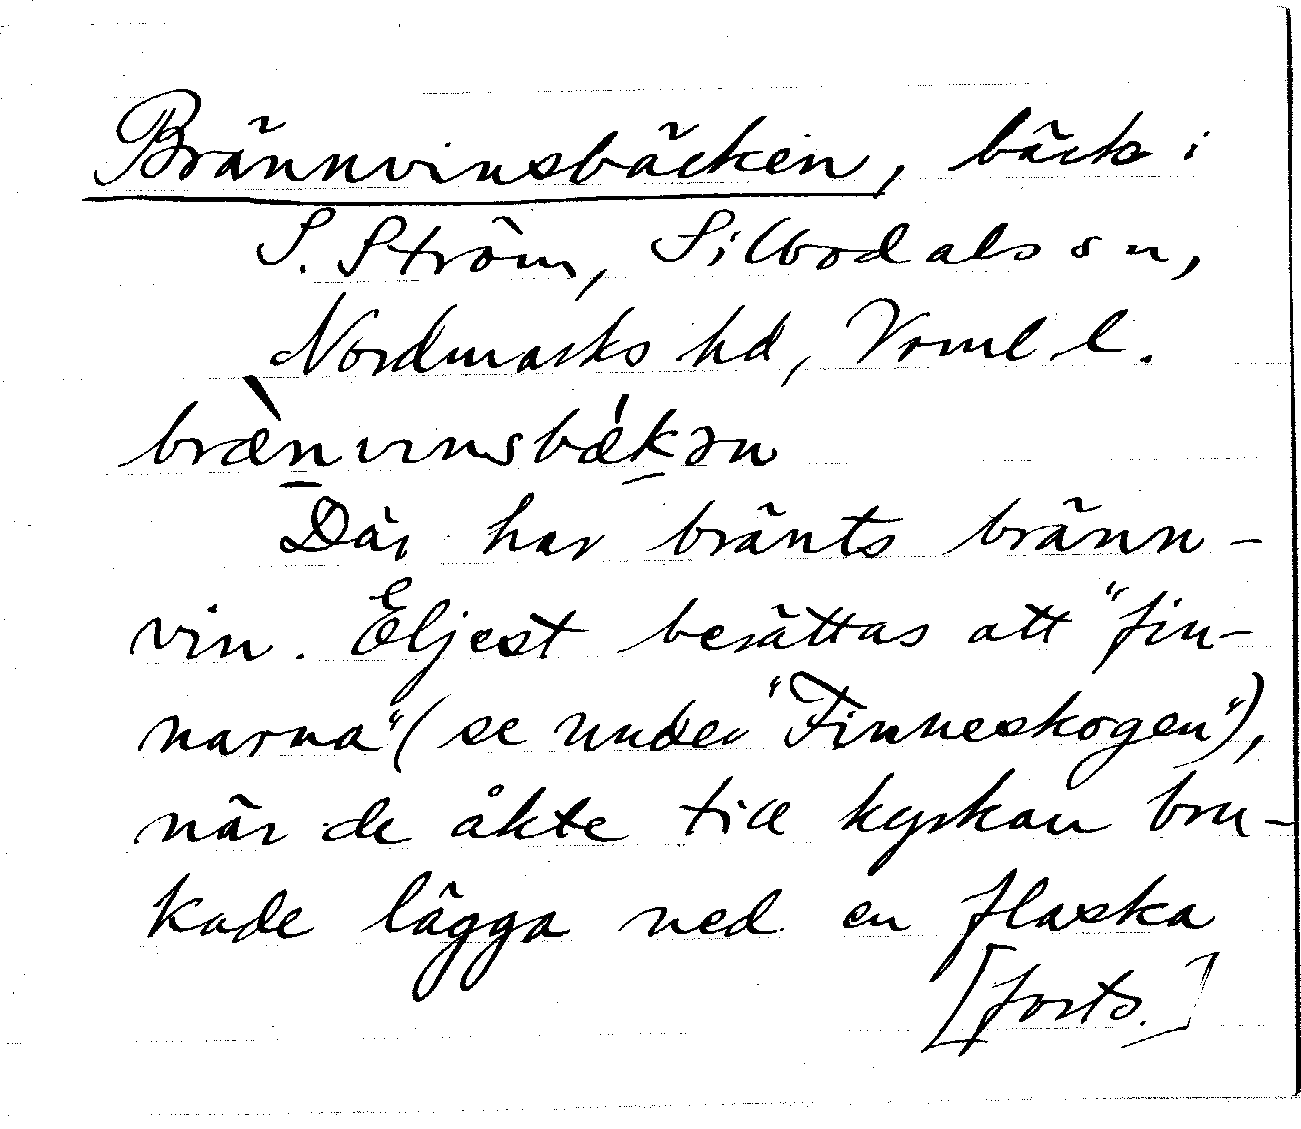 Brännvinsbäcken, bäck i
S. Ström, Silbodals sn,
Nordmarks hd, Vrml l.
bræ̀nvinsbækən
Där har bränts bränn-
vin. Eljest berättas att "fin-
narna" (se under "Finneskogen"),
när de åkte till kyrkan bru-
kade lägga ned en flaska
[forts.]